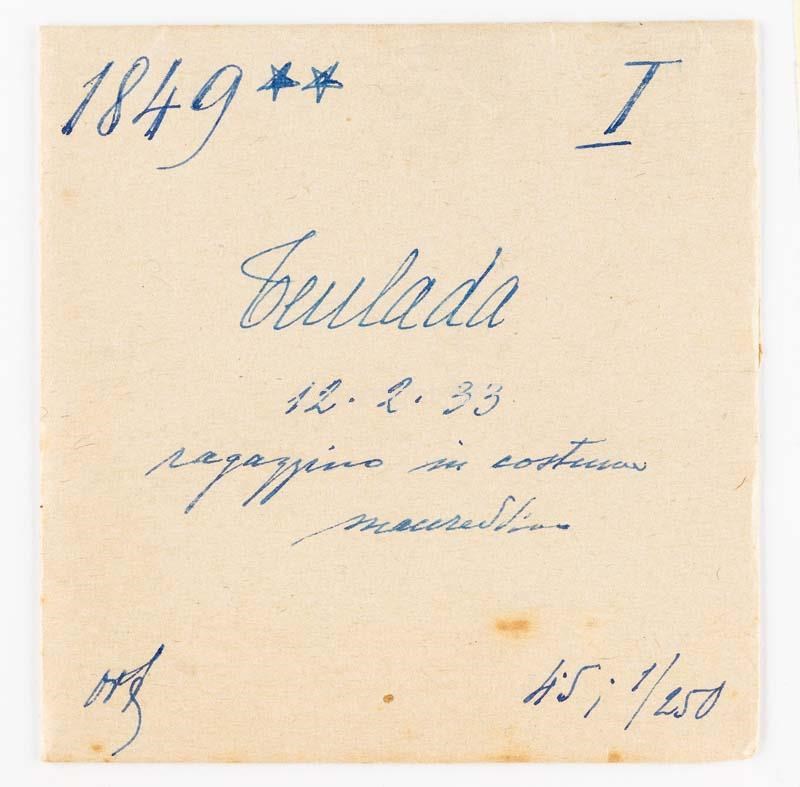 1849 ** I
Teulada
12. 2. 33
ragazzino in costume
maureddino
4·5 ; 1/250